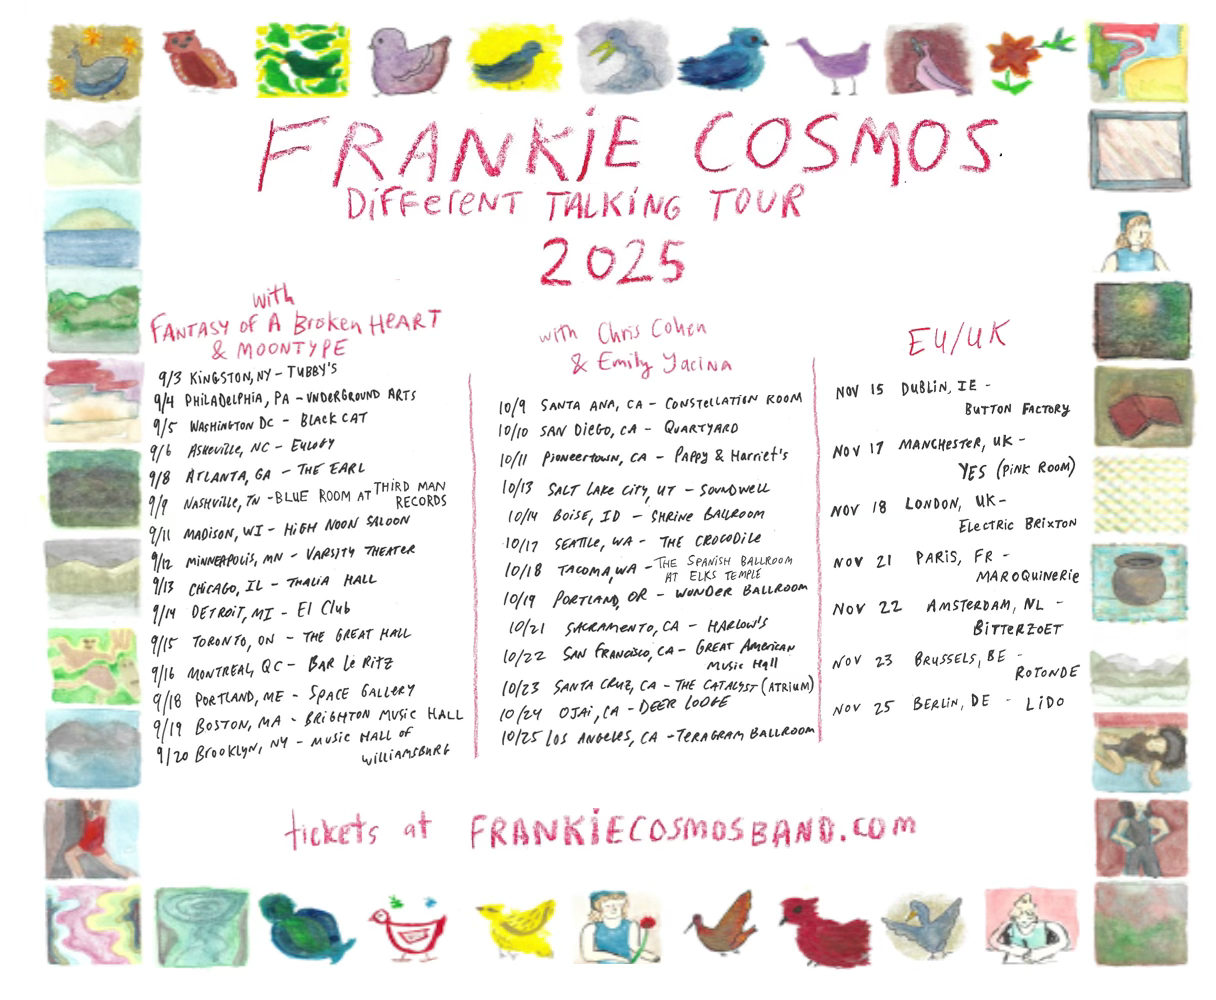 FRANKIE COSMOS
DIFFERENT TALKING TOUR
2025
with
FANTASY of A Broken HEART
& MOONTYPE
9/3 KINGSTON, NY - TUBBY'S
9/4 PHILADELPHIA, PA - UNDERGROUND ARTS
9/5 WASHINGTON DC - BLACK CAT
9/6 ASHEVILLE, NC - EULOGY
9/8 ATLANTA, GA - THE EARL
9/9 NASHVILLE, TN - BLUE ROOM AT THIRD MAN
RECORDS
9/11 MADISON, WI - HIGH NOON SALOON
9/12 MINNEAPOLIS, MN - VARSITY THEATER
9/13 CHICAGO, IL - THALIA HALL
9/14 DETROIT, MI - El Club
9/15 TORONTO, ON - THE GREAT HALL
9/16 MONTREAL, QC - BAR Le RITZ
9/18 PORTLAND, ME - SPACE GALLERY
9/19 BOSTON, MA - BRIGHTON MUSIC HALL
9/20 Brooklyn, NY - MUSIC HALL OF
WILLIAMSBURG
with Chris Cohen
& Emily Yacina
10/9 SANTA ANA, CA - CONSTELLATION ROOM
10/10 SAN DIEGO, CA - QUARTYARD
10/11 PIONEERTOWN, CA - PAPPY & HARRIET'S
10/13 SALT LAKE CITY, UT - SOUNDWELL
10/14 BOISE, ID - SHRINE BALLROOM
10/17 SEATTLE, WA - THE CROCODILE
10/18 TACOMA, WA - THE SPANISH BALLROOM
AT ELKS TEMPLE
10/19 PORTLAND, OR - WONDER BALLROOM
10/21 SACRAMENTO, CA - HARLOW'S
10/22 SAN FRANCISCO, CA - GREAT AMERICAN
MUSIC HALL
10/23 SANTA CRUZ, CA - THE CATALYST (ATRIUM)
10/24 OJAI, CA - DEER LODGE
10/25 LOS ANGELES, CA - TERAGRAM BALLROOM
EU/UK
NOV 15 DUBLIN, IE -
BUTTON FACTORY
NOV 17 MANCHESTER, UK -
YES (PINK ROOM)
NOV 18 LONDON, UK -
ELECTRIC BRIXTON
NOV 21 PARIS, FR -
MAROQUINERIE
NOV 22 AMSTERDAM, NL -
BITTERZOET
NOV 23 BRUSSELS, BE -
ROTONDE
NOV 25 BERLIN, DE - LIDO
tickets at FRANKIECOSMOSBAND.COM